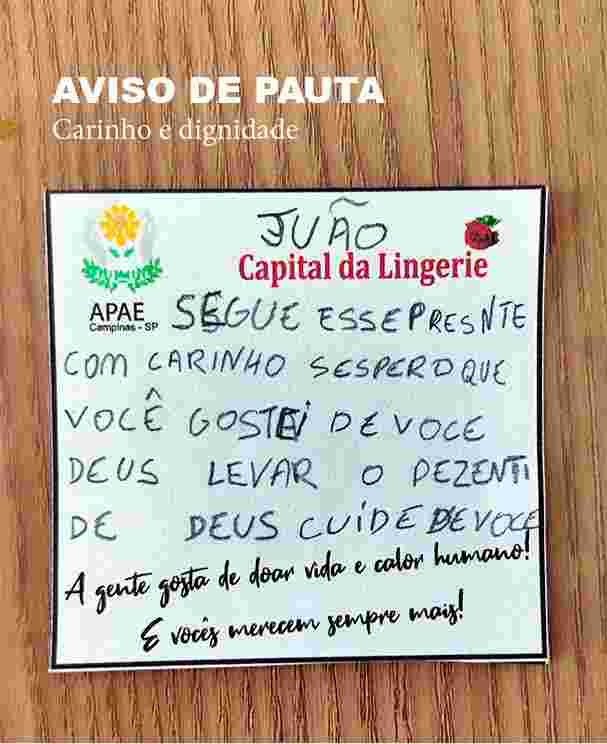 AVISO DE PAUTA
Carinho e dignidade
JUÃO
Capital da Lingerie
APAE
Campinas - SP
SEGUE ESSE PRESNTE
COM CARINHO SESPERO QUE
VOCÊ GOSTEI DE VOCE
DEUS LEVAR O DEZENTI
DE DEUS CUIDE DE VOCE
A gente gosta de doar vida e calor humano!
E vocês merecem sempre mais!